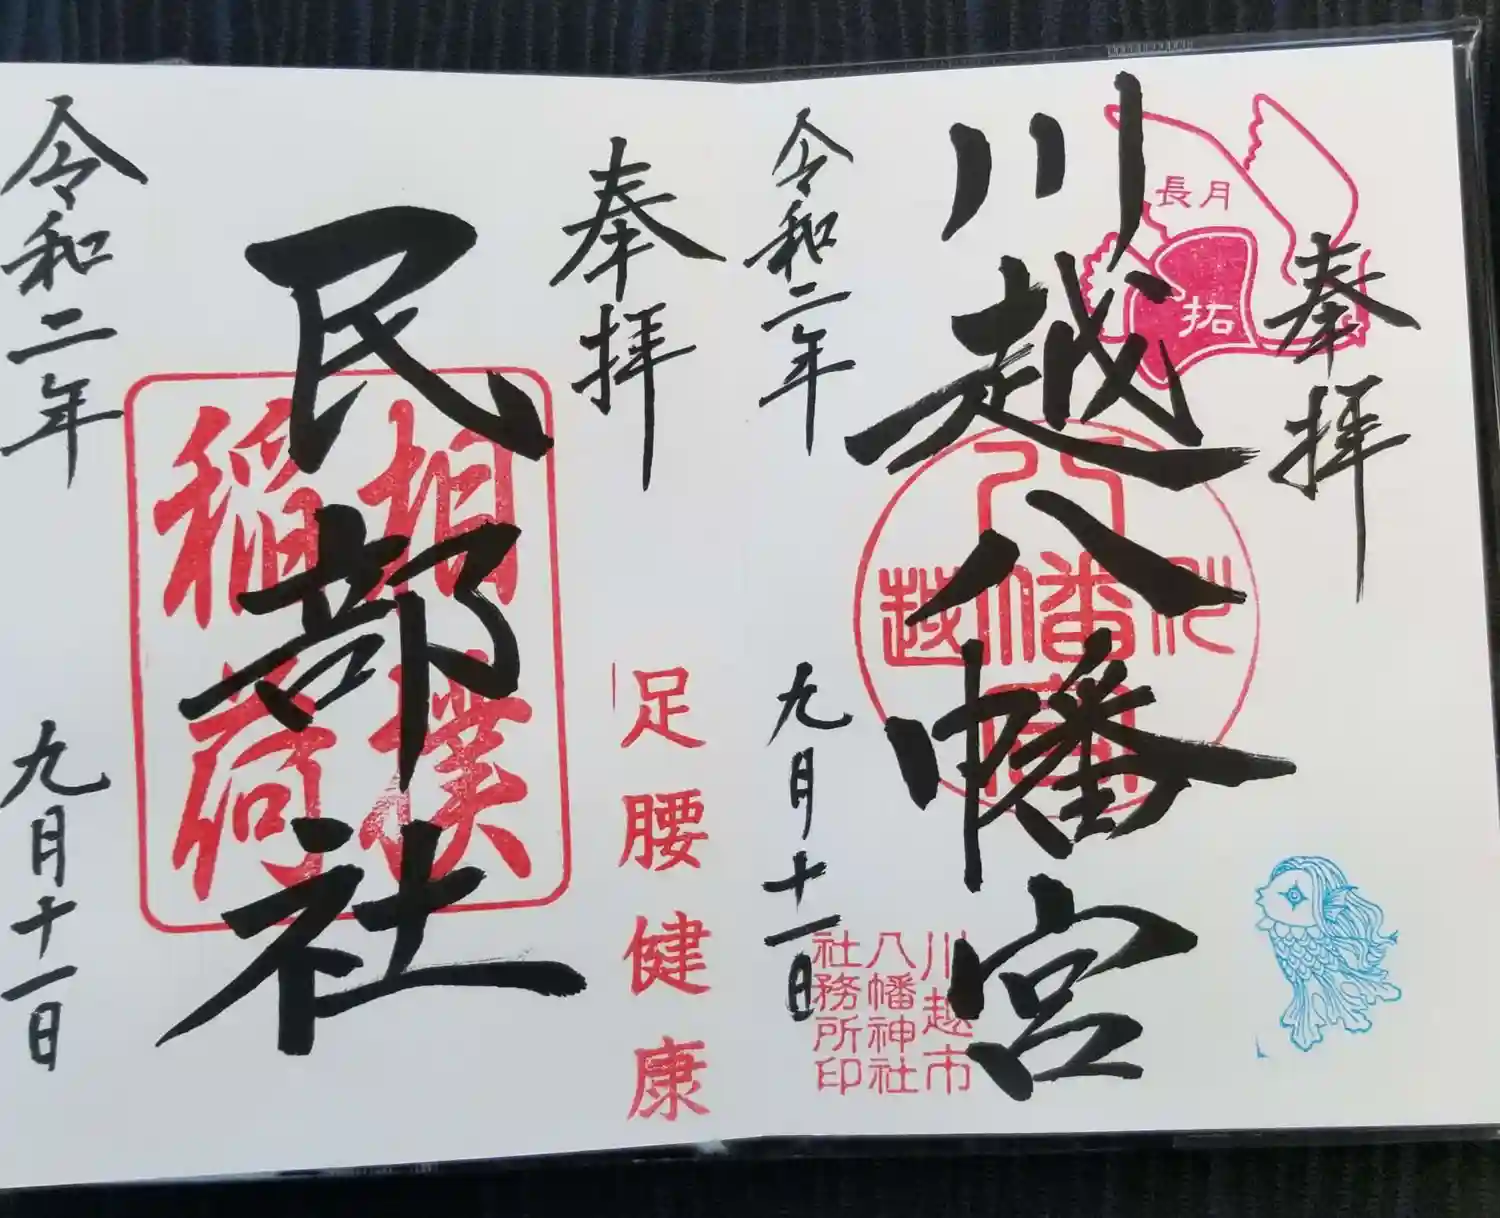 奉拝
川越八幡宮
令和二年
九月十一日
長月
拓
川越
八幡宮
川越市
八幡神社
社務所印
奉拝
民部社
令和二年
九月十一日
相撲
稲荷
足腰健康